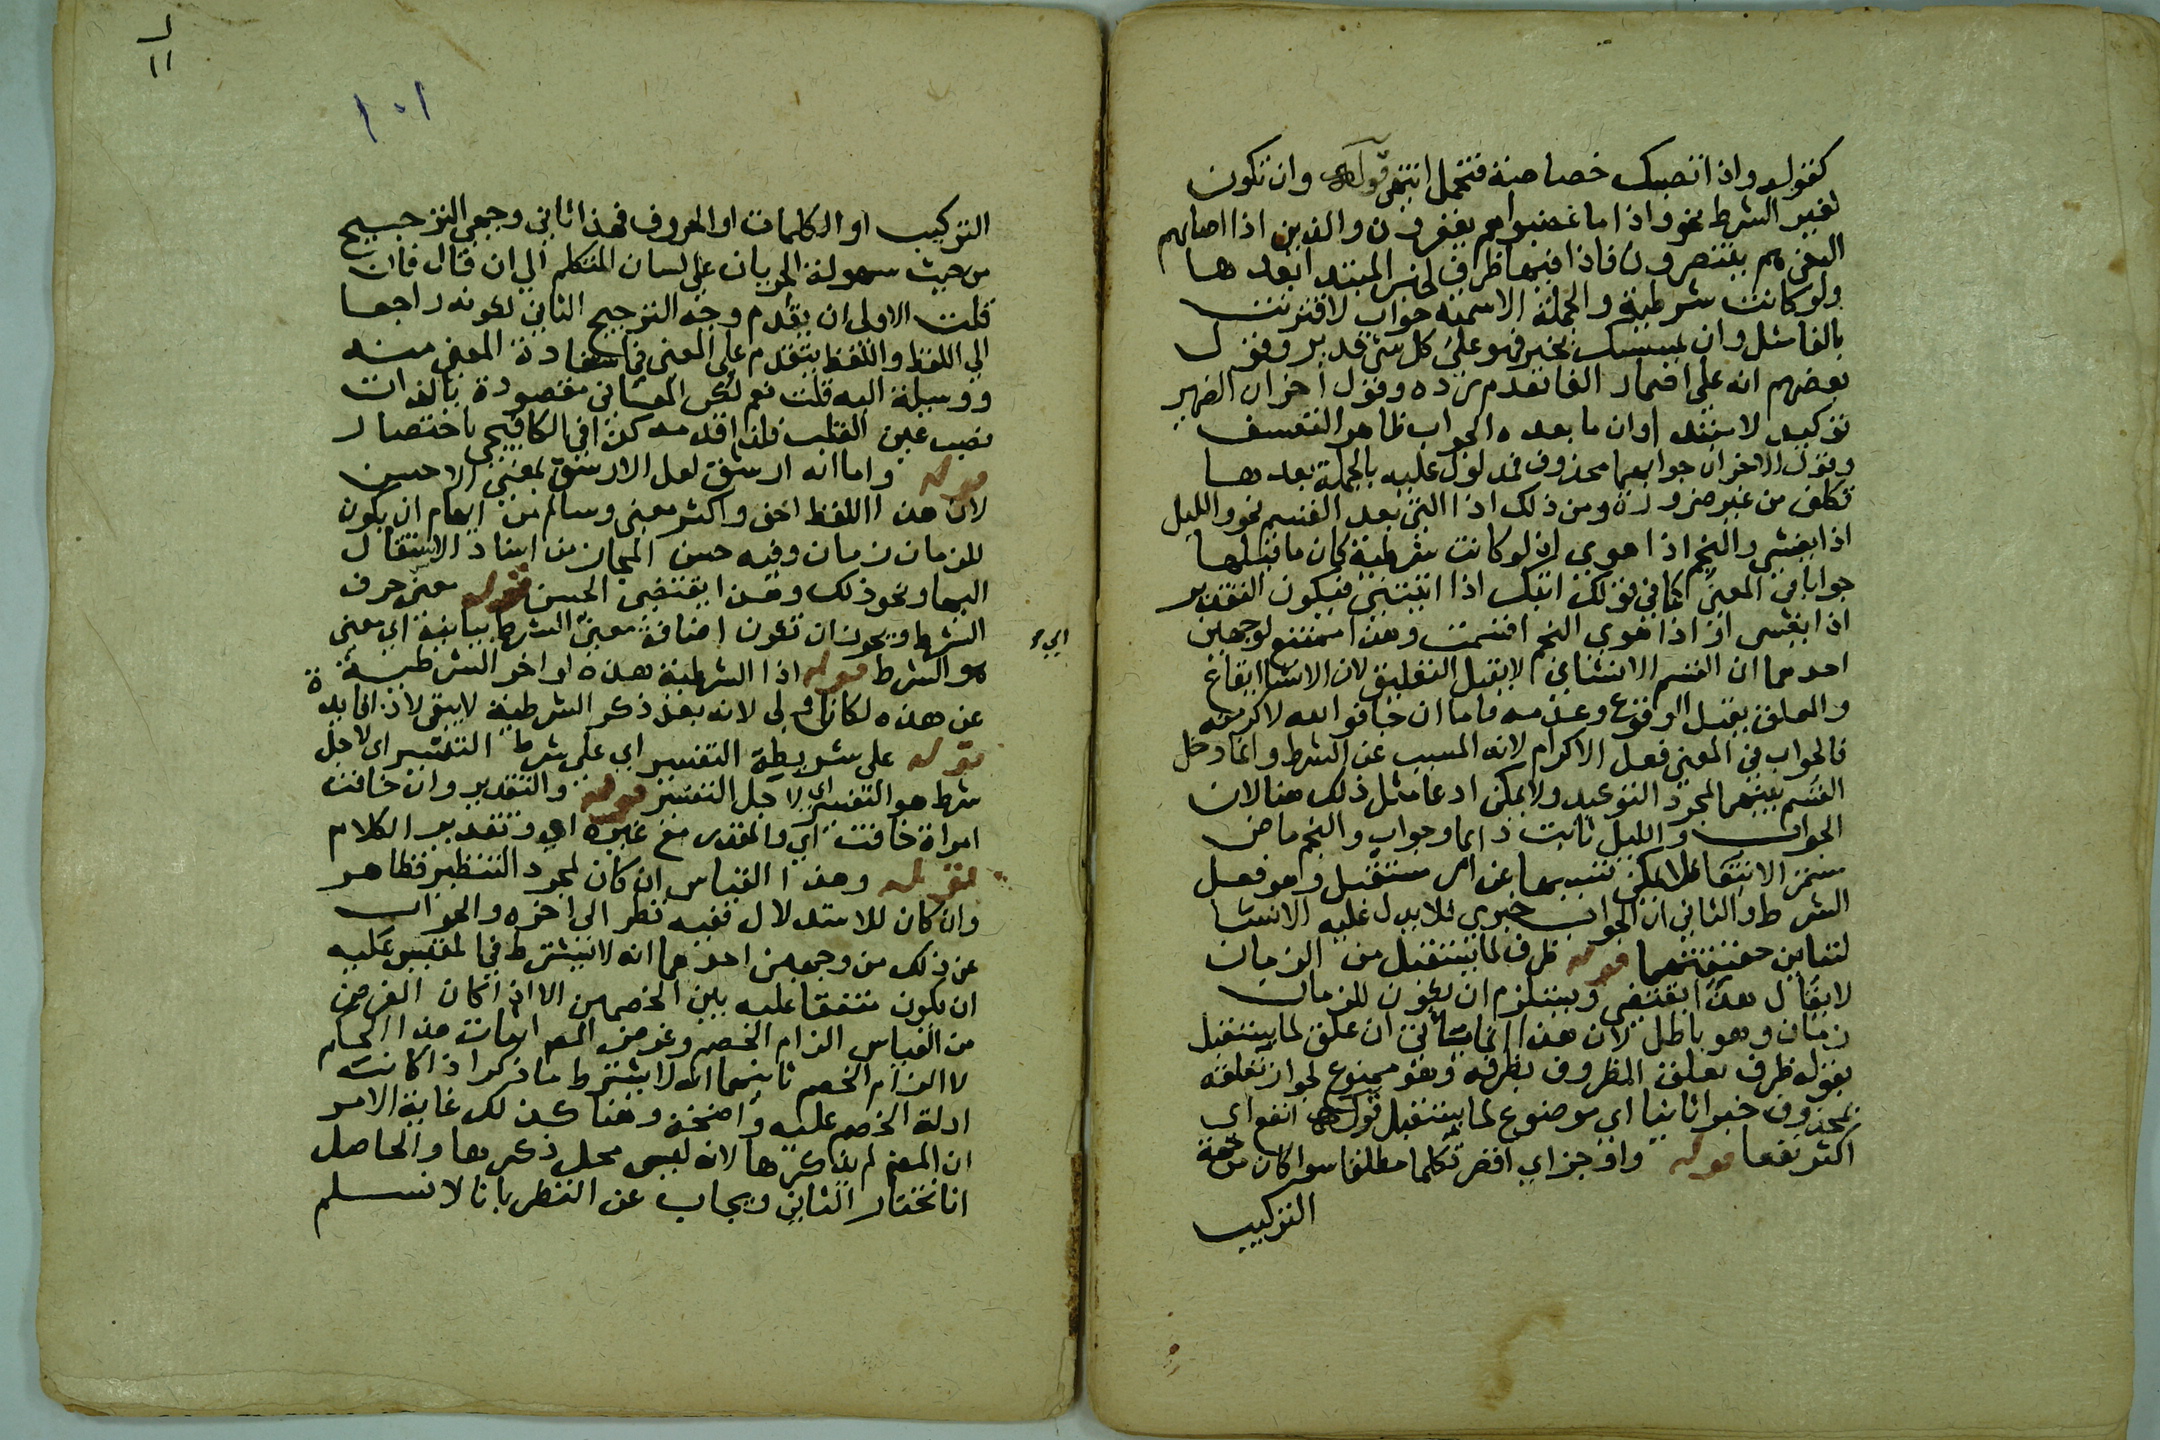 كقوله واذا تصبك خصاصة فتحمل انتهى قوله وان تكون
لغير الشرط نحو واذا ما غضبوا هم يغفرون والذين اذا اصابهم
البغي هم ينتصرون فاذا فيهما ظرف لخبر المبتدا بعدها
ولو كانت شرطية والجملة الاسمية جواب لاقترنت
بالفا مثل وان يمسسك بخير فهو على كل شي قدير وقول
بعضهم انه على اضمار الفا تقدم رده وقول اخر ان الضمير
توكيد لا مبتدا وان ما بعده الجواب ظاهر التعسف
وقول الاخر ان جوابها محذوف مدلول عليه بالجملة بعدها
تكلف من غير ضرورة ومن ذلك اذا التي بعد القسم نحو والليل
اذا يغشى والنجم اذا هوى اذ لو كانت شرطية كان ما قبلها
جوابا في المعنى كما في قولك اتيك اذا اتيتني فيكون التقدير
اذا يغشى او اذا هوى النجم اقسمت وهذا ممتنع لوجهين
احدهما ان القسم الانشاءي لا يقبل التعليق لان الانشا ايقاع
والمعلق يقبل الوقوع وعدمه فاما ان جا فوالله لاكرمنه
فالجواب في المعنى فعل الاكرام لانه المسبب عن الشرط وانما دخل
القسم بينهما لمجرد التوكيد ولا يمكن ادعا مثل ذلك هنا لان
الجواب والليل ثابت دايما وجواب والنجم ماض
مستمر الانتفا فلا يمكن تسببهما عن امر مستقبل وهو فعل
الشرط والثاني ان الجواب خبري فلا يدل عليه الانشا
لتباين حقيقتهما قوله ظرف لما يستقبل من الزمان
لا يقال هذا يقتضي ويستلزم ان يكون للزمان
زمان وهو باطل لان هذا انما يتاتى ان علق لما يستقبل
بقوله ظرف تعلق المظروف بظرفه وهو ممنوع لجواز تعلقه
بمحذوف خبرا ثانيا اي موضوع لما يستقبل قوله انفع اي
اكثر نفعا قوله واوجز اي اخصر تكلما مطلقا سوا كان من جهة
التركيب
١٠١
التركيب او الكلمات او الحروف فهذا ثاني وجهي الترجيح
من حيث سهولة الجريان على لسان المتكلم الى ان قال فان
قلت الاولى ان يقدم وجه الترجيح الثاني لكونه راجعا
الى اللفظ واللفظ يتقدم على المعنى في استفادة المعنى منه
ووسيلة اليه قلت نعم لكن المعاني مقصودة بالذات
نصب عين القلب فلذا قدمه كذا في الكافيجي باختصار
قوله واما انه ارشق لعل الارشق بمعنى الاحسن
لان هذا اللفظ اخف واكثر معنى وسالم من ايهام ان يكون
للزمان زمان وفيه حسن المجاز من اسناد الاستقبال
اليها ونحو ذلك وهذا يقتضي الحسن قوله معنى حرف
الشرط ويجوز ان تكون اضافة معنى الشرط بيانية اي معنى
اي
هو الشرط قوله اذا الشرطية هذه او اخر الشرطية
عن هذه لكان اولى لانه بعد ذكر الشرطية لا يبقى لاذ الفايدة
قوله على شريطة التفسير اي على شرط التفسير اي لاجل
شرط هو التفسير اي لاجل التفسير قوله والتقدير وان خافت
امراة خافت اي والمقدر مع غيره اي وتقدير الكلام
قوله وهذا القياس ان كان لمجرد التنظير فظاهر
وان كان للاستدلال ففيه نظر الى اخره والجواب
عن ذلك من وجهين احدهما انه لا يشترط في المقيس عليه
ان يكون متفقا عليه بين الخصمين الا اذا كان الغرض
من القياس الزام الخصم وغرض المص اثبات هذا الحكم
لا الزام الخصم ثانيهما انه لا يشترط ما ذكر اذا كانت
ادلة الخصم عليه واضحة وهنا كذلك غاية الامر
ان المص لم يذكرها لانه ليس محل ذكرها والحاصل
انا نختار الثاني ويجاب عن النظر بانا لا نسلم